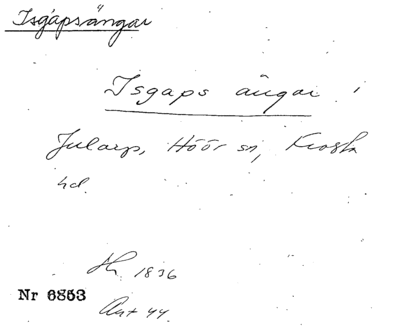 Isgapsängar
Isgaps ängar i
Jularp, Höör sn, Frosta
hd.
Hr. 1836
Nr 6853
Akt 44.